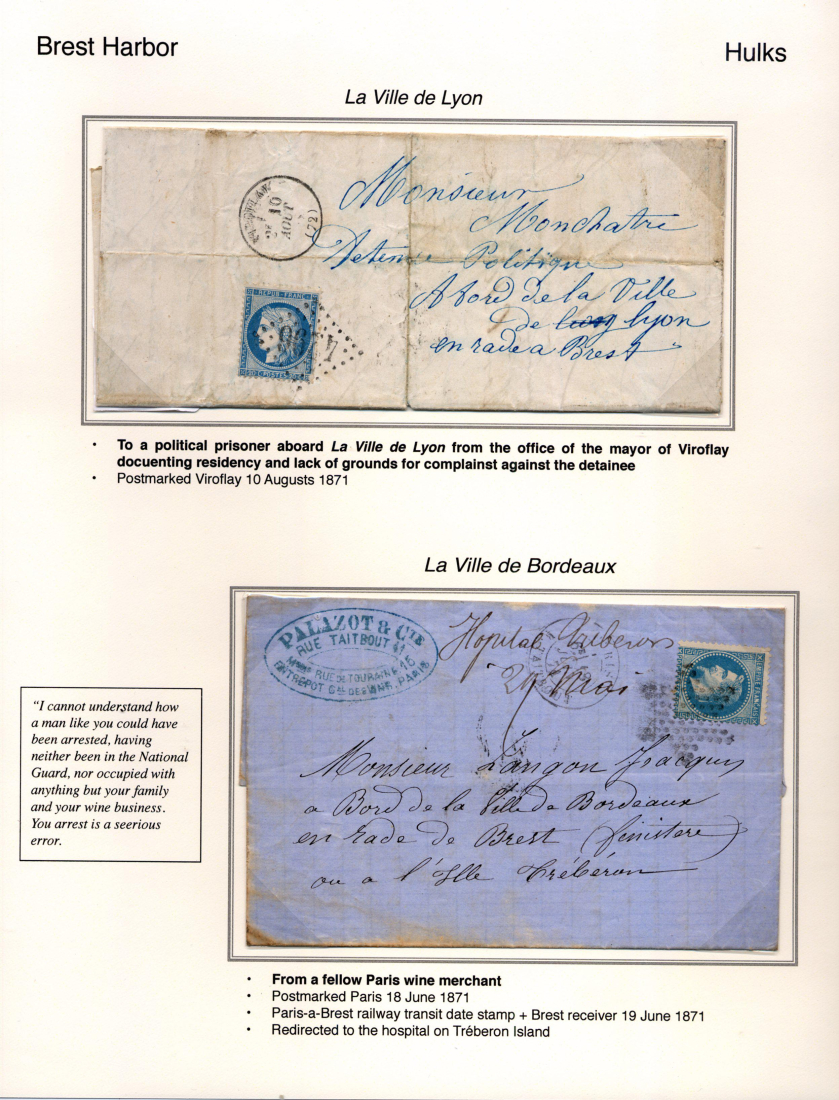 Brest Harbor
Hulks
La Ville de Lyon
10
AOUT
(72)
Monsieur
Monchatre
Detenu Politique
A bord de la Ville
de lyon
en rade a Brest
REPUB FRANC
POSTES
• To a political prisoner aboard La Ville de Lyon from the office of the mayor of Viroflay
docuenting residency and lack of grounds for complainst against the detainee
• Postmarked Viroflay 10 Augusts 1871
La Ville de Bordeaux
PALAZOT & CIE
RUE TAITBOUT 41
RUE DE TOURAINE 15
ENTREPOT GAL DES VINS, PARIS
Hopital Tréberon
Monsieur Langon Jacques
a Bord de la Ville de Bordeaux
en rade de Brest (finistere)
ou a l'Isle Trébéron
"I cannot understand how
a man like you could have
been arrested, having
neither been in the National
Guard, nor occupied with
anything but your family
and your wine business.
You arrest is a seerious
error.
• From a fellow Paris wine merchant
• Postmarked Paris 18 June 1871
• Paris-a-Brest railway transit date stamp + Brest receiver 19 June 1871
• Redirected to the hospital on Tréberon Island